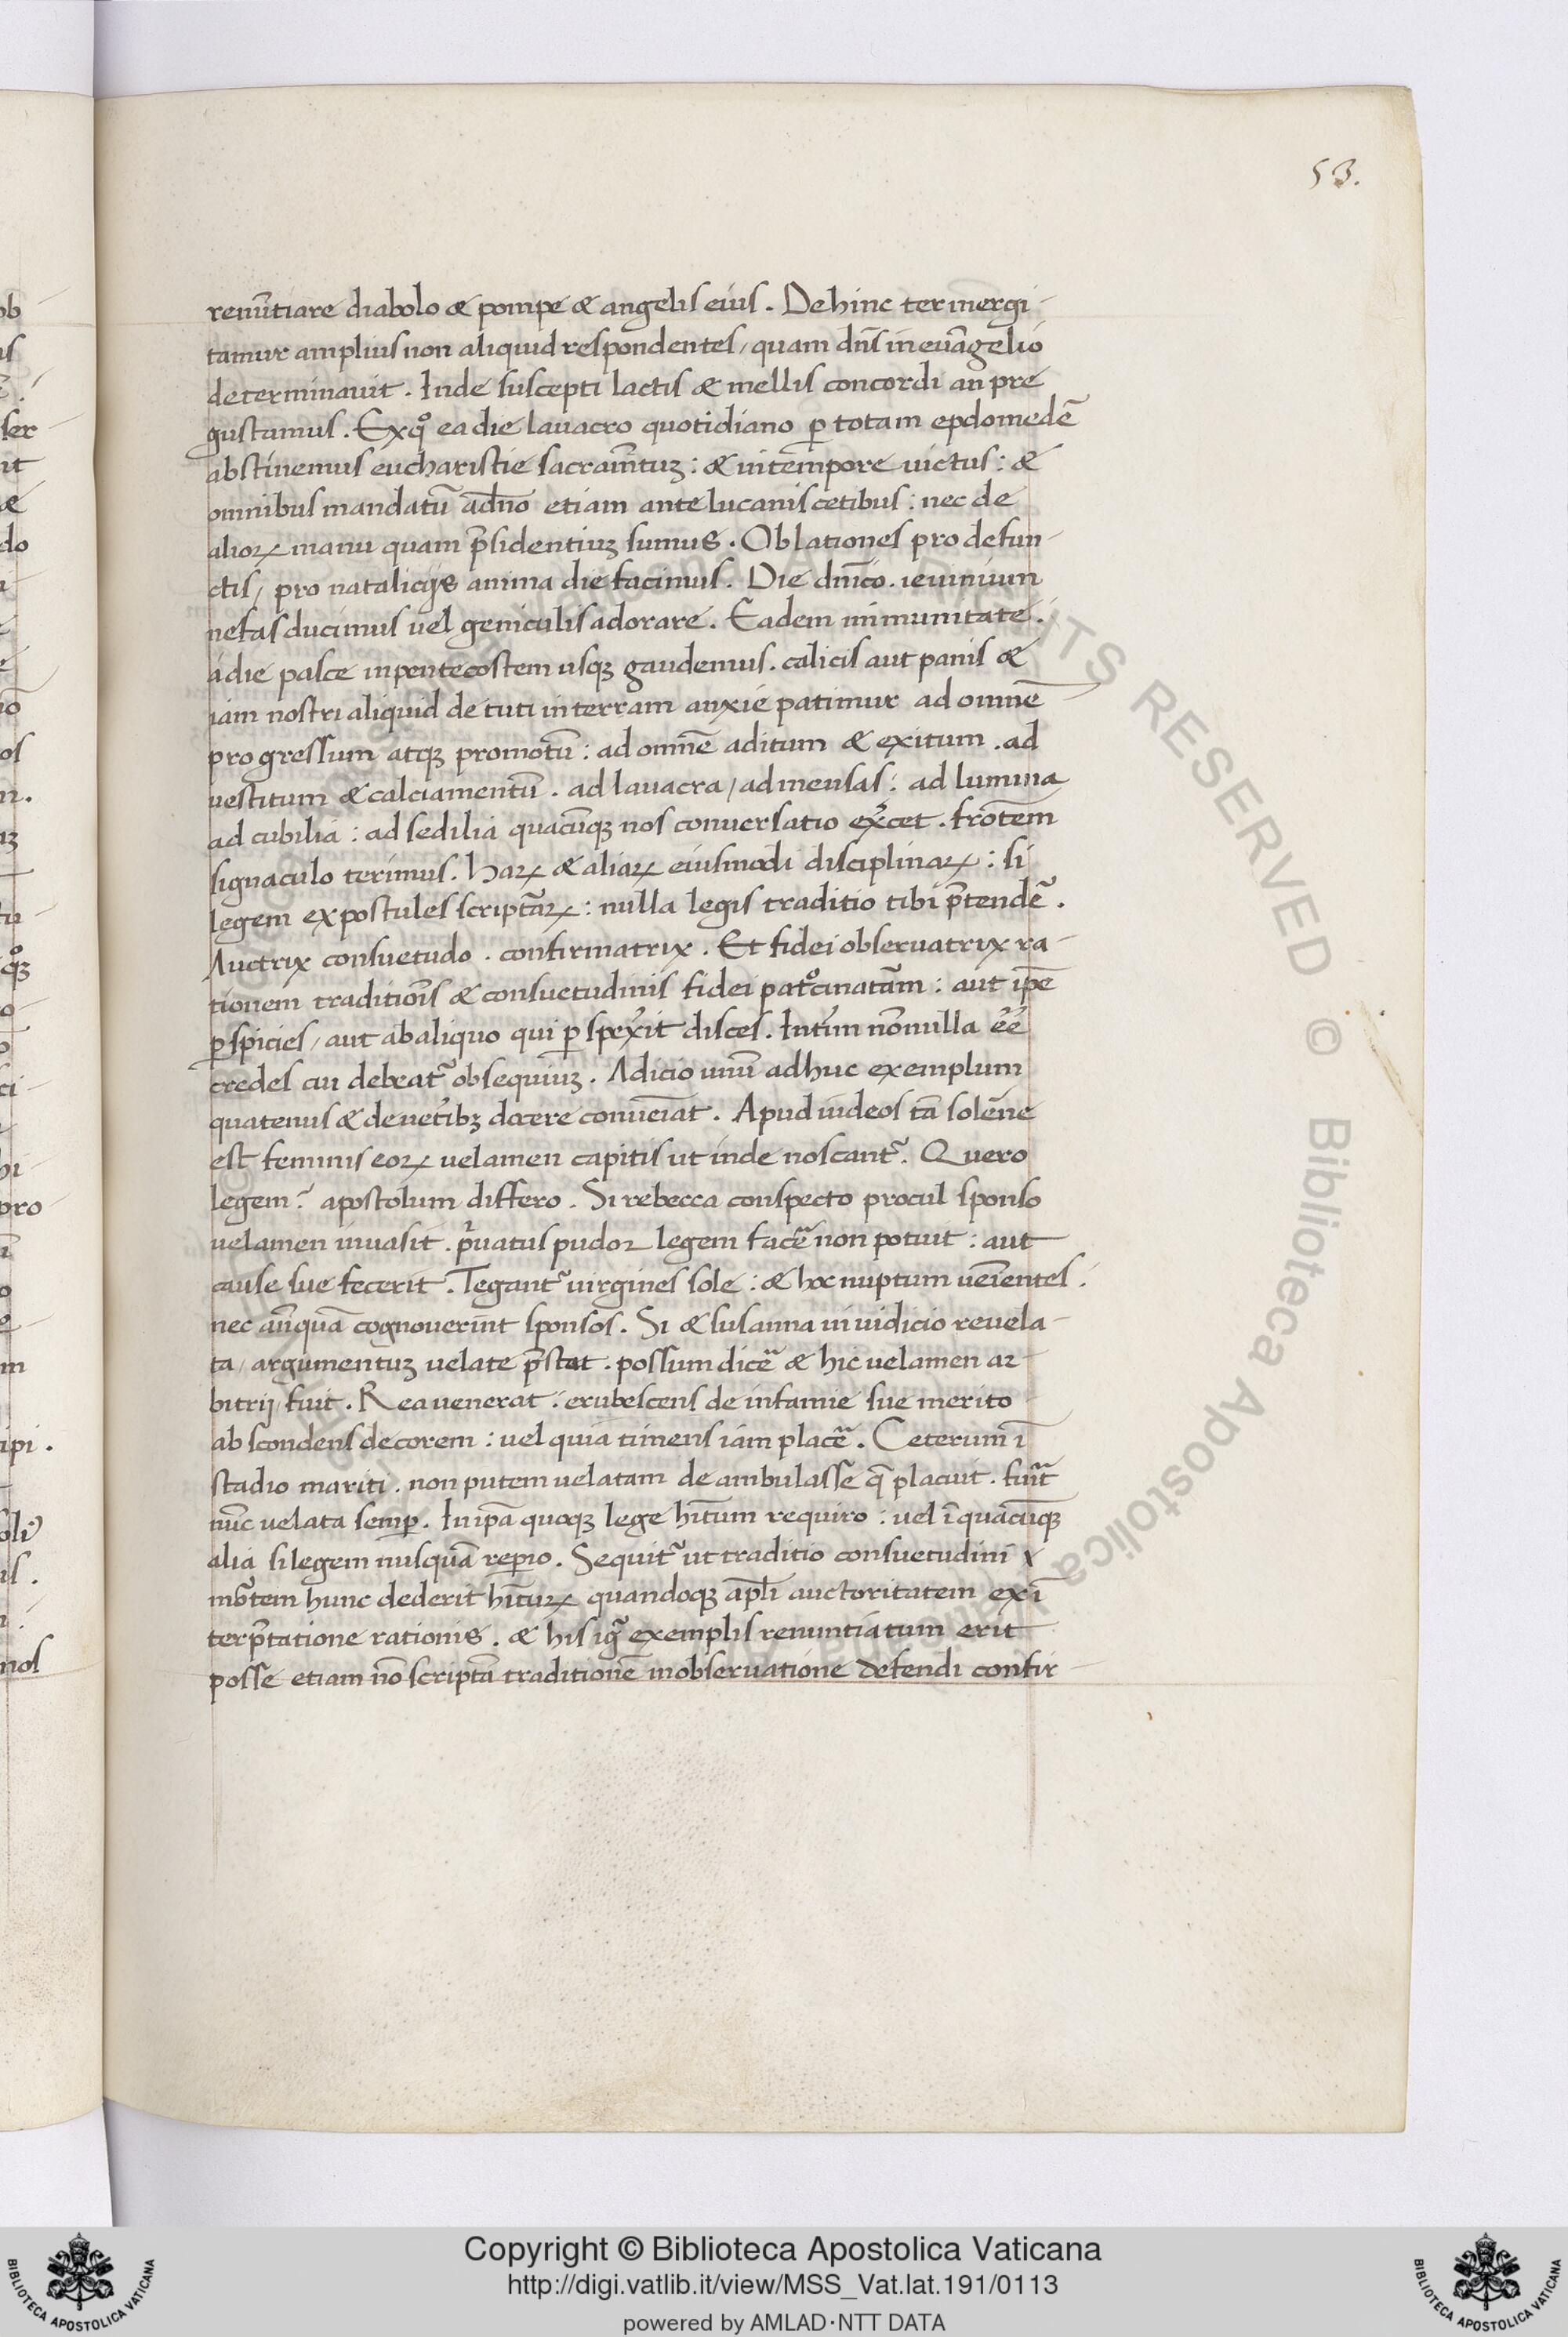 53.
renūtiare diabolo & pompe & angelis eius . Dehinc ter mergi-
tamur amplius non aliquid respondentes, quam dn̄s in euāgelio
determinauit . Inde suscepti lactis & mellis concordi an pre
gustamus . Exq̊ ea die lauacro quotidiano ꝑ totam epdomedē
abstinemus eucharistie sacram̄tuꝫ : & in tempore uictus : &
omnibus mandatū ad dn̄o etiam antelucanis cetibus : nec de
alioꝝ manu quam p̄sidentiuꝫ sumus . Oblationes pro defun-
ctis, pro natalicijs annua die facimus . Die dn̄ico . ieiunium
nefas ducimus uel geniculis adorare . Eadem immunitate .
a die pasce in pentecostem usqꝫ gaudemus . calicis aut panis &
iam nostri aliquid decuti in terram anxie patimur ad omnē
progressum atqꝫ promotū : ad omnē aditum & exitum . ad
uestitum & calciamentū . ad lauacra, ad mensas : ad lumina
ad cubilia : ad sedilia quacūqꝫ nos conuersatio ex̄cet . frōtem
signaculo terimus . Haꝝ & aliaꝝ eiusmodi disciplinaꝝ : si
legem expostules scriptāꝝ : nulla legis traditio tibi p̄tendē .
Auctrix consuetudo . confirmatrix . Et fidei obseruatrix ra-
tionem traditiōis & consuetudinis fidei pat̊cinatām : aut ip̄e
ꝑspicies, aut ab aliquo qui ꝑspex̄it disces . Int̄im nōnulla ēē
credes cui debeat̄ obsequiuꝫ . Adicio unū adhuc exemplum
quatenus & de uet̄ibꝫ docere conueīat . Apud iudeos tā solēne
est feminis eoꝝ uelamen capitis ut inde noscant̄ . Quero
legem ? apostolum differo . Si rebecca conspecto procul sponso
uelamen inuasit . p̄uatus pudor legem facē non potuit : aut
cause sue fecerit . Tegant̄ uirgines sole : & hoc nuptum ueīentes .
nec an̄quā cognouerīnt sponsos . Si & susanna in iudicio reuela-
ta, argumentuꝫ uelate p̄stat . possum dicē & hic uelamen ar
bitrij fuit . Rea uenerat : erubescens de infamie sue merito
abscondens decorem : uel quia timens iam placē . Ceterum ī
stadio mariti . non putem uelatam deambulasse q̄ placuit . fuīt
nūc uelata semꝑ . In ip̄a quoqꝫ lege hītum requiro : uel ī quacūqꝫ
alia si legem nusquā reꝑio . Sequit̄ ut traditio consuetudini
hunc dederit hītuꝝ quandoqꝫ apl̄i auctoritatem ex ī
terp̄tatione rationis . & his igꝰ exemplis renuntiatum erit
posse etiam nō scriptā traditionē in obseruatione defendi confir-
Copyright © Biblioteca Apostolica Vaticana
http://digi.vatlib.it/view/MSS_Vat.lat.191/0113
powered by AMLAD·NTT DATA